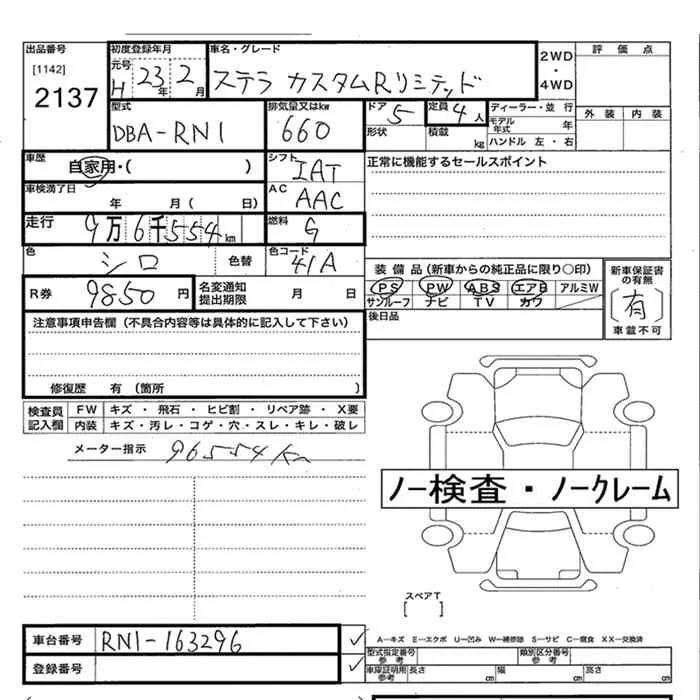 出品番号 初度登録年月 車名・グレード 2WD・4WD 評価点
[1142] 元号
2137 H 23年 2月 ステラ カスタムRリミテッド
外装 内装
型式 排気量又はkw ドア 5 定員 4人 ディーラー・並行
DBA-RN1 660 形状 積載 kg モデル年式 年
ハンドル 左・右
車歴 自家用・( ) シフト IAT 正常に機能するセールスポイント
車検満了日 年 月( 日) AC AAC
走行 9万6千554km 燃料 G
色 シロ 色替 色コード 41A 装備品(新車からの純正品に限り〇印) 新車保証書の有無
R券 9850円 名変通知提出期限 月 日 PS PW ABS エアB アルミW [有]
サンルーフ ナビ TV カワ 車載不可
注意事項申告欄(不具合内容等は具体的に記入して下さい) 後日品
修復歴 有(箇所 )
検査員記入欄 FW キズ・飛石・ヒビ割・リペア跡・X要
内装 キズ・汚レ・コゲ・穴・スレ・キレ・破レ
メーター指示 96554Km
ノー検査・ノークレーム
スペアT
[ ]
車台番号 RN1-163296 ✓ A―キズ E―エクボ U―凹み W―補修跡 S―サビ C―腐食 XX―交換済
型式指定番号参考 類別区分番号参考
登録番号 ✓ 車庫証明用参考 長さ cm 幅 cm 高さ cm